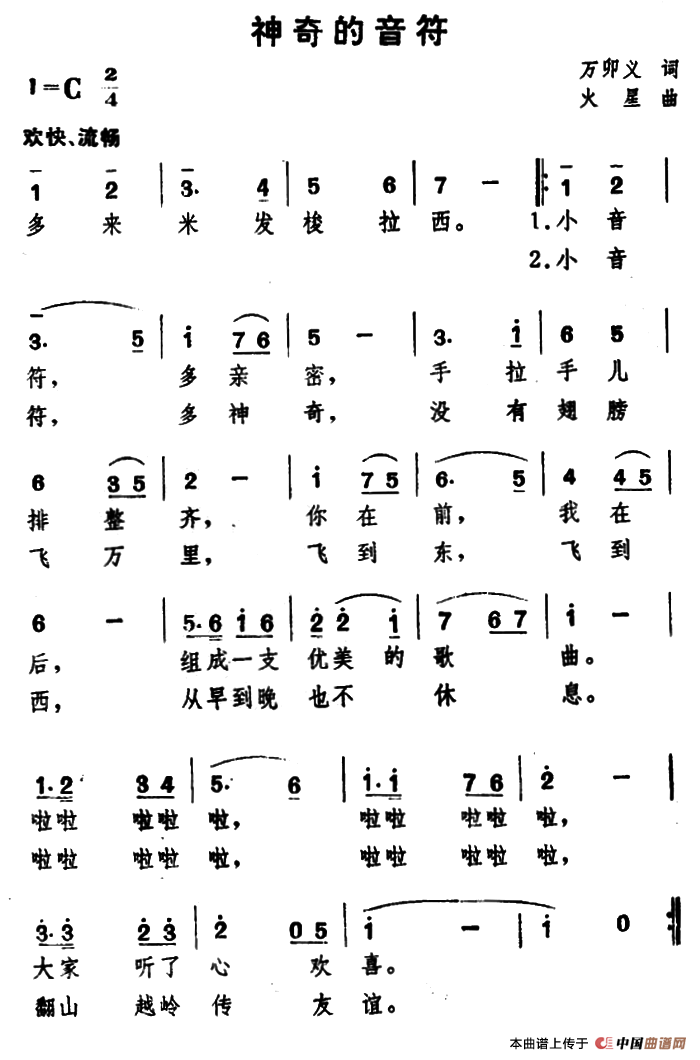 神奇的音符
万卯义 词
1=C 2/4
火星 曲
欢快、流畅
1 2 | 3. 4 | 5 6 | 7 — |: 1 2 |
多来米发梭拉西。 1.小音
2.小音
3. 5 | 1 76 | 5 — | 3. 1 | 6 5 |
符, 多亲密, 手拉手儿
符, 多神奇, 没有翅膀
6 35 | 2 — | 1 75 | 6. 5 | 4 45 |
排整齐, 你在前, 我在
飞万里, 飞到东, 飞到
6 — | 5.6 16 | 2 2 1 | 7 67 | 1 — |
后, 组成一支优美的歌曲。
西, 从早到晚也不休息。
1.2 34 | 5. 6 | 1.1 76 | 2 — |
啦啦 啦啦 啦, 啦啦 啦啦 啦,
啦啦 啦啦 啦, 啦啦 啦啦 啦,
3.3 23 | 2 05 | 1 — | 1 0 :|
大家 听了心欢喜。
翻山 越岭传友谊。
本曲谱上传于 中国曲谱网